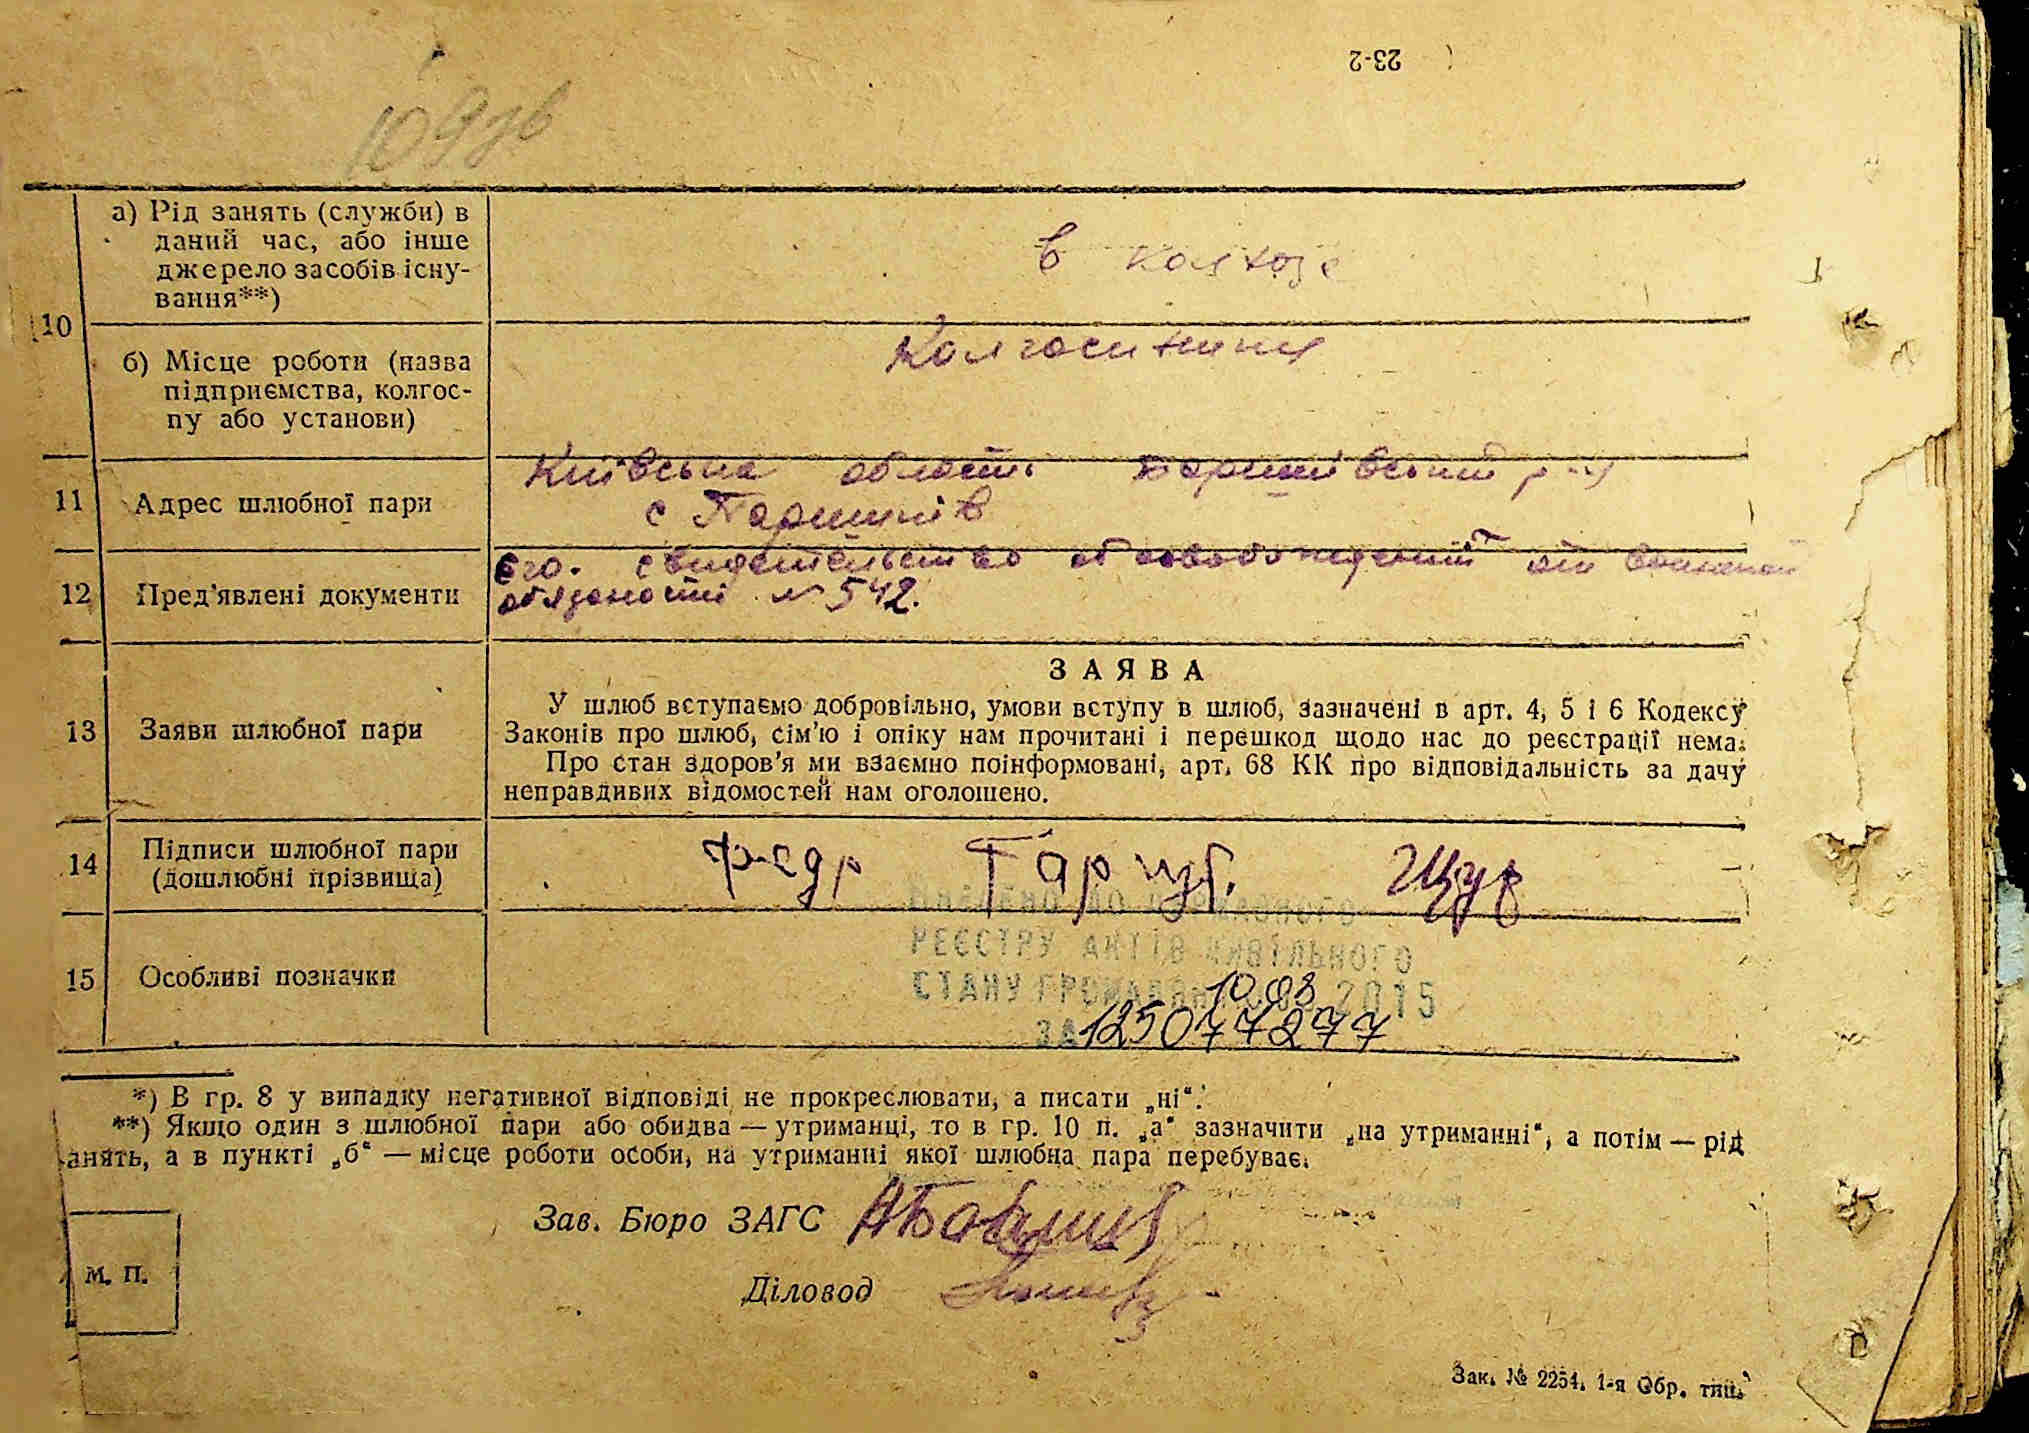 23-2
109зв
а) Рід занять (служби) в
даний час, або інше
джерело засобів існу-
вання**)
в колхозе
10
б) Місце роботи (назва
підприємства, колгос-
пу або установи)
Колгоспниця
11
Адрес шлюбної пари
Київська область Баришівський р-н
с Паришків
12
Пред'явлені документи
Его. свидетельство об освобождении от воинской
обязаности № 542.
13
Заяви шлюбної пари
ЗАЯВА
У шлюб вступаємо добровільно, умови вступу в шлюб, зазначені в арт. 4, 5 і 6 Кодексу
Законів про шлюб, сім'ю і опіку нам прочитані і перешкод щодо нас до реєстрації нема.
Про стан здоров'я ми взаємно поінформовані, арт. 68 КК про відповідальність за дачу
неправдивих відомостей нам оголошено.
14
Підписи шлюбної пари
(дошлюбні прізвища)
15
Особливі позначки
ВНЕСЕНО ДО ДЕРЖАВНОГО
РЕЄСТРУ АКТІВ ЦИВІЛЬНОГО
СТАНУ ГРОМАДЯН 10.03 2015
ЗА 125077277
*) В гр. 8 у випадку негативної відповіді не прокреслювати, а писати „ні“.
**) Якщо один з шлюбної пари або обидва — утриманці, то в гр. 10 п. „а“ зазначити „на утриманні“, а потім — рід
анять, а в пункті „б“ — місце роботи особи, на утриманні якої шлюбна пара перебуває.
Зав. Бюро ЗАГС
Діловод
М. П.
Зак. № 2254. 1-я Обр. тип.